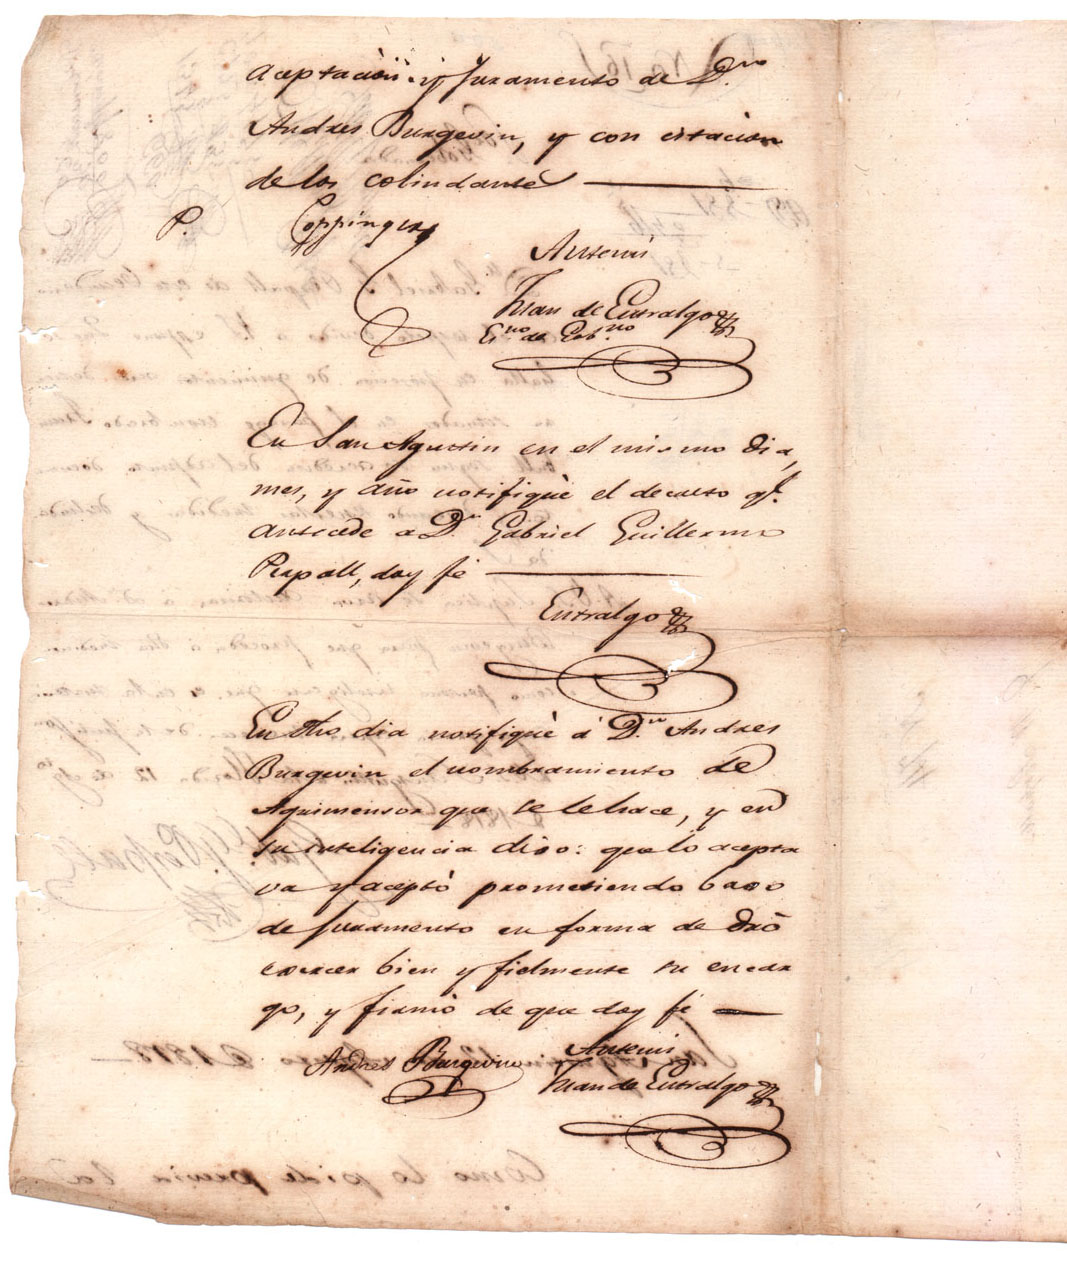 aceptacion y juramento de Dⁿ
Andres Burgevin, y con citacion
de los colindantes
P. Coppinger
Antemi
Juan de Entralgo
Esno de Gobno
En San Agustin en el mismo dia,
mes, y año notifiqué el decreto q.e
antecede a Dⁿ Gabriel Guillermo
Perpall, doy fé
Entralgo
En dho dia notifiqué á Dⁿ Andres
Burgevin el nombramiento de
Agrimensor que se le hace, y en
su inteligencia dixo: que lo acepta
va y aceptó prometiendo baxo
de juramento en forma de dro
exercer bien y fielmente su encar
go, y firmó de que doy fé
Andres Burgevin
Antemi
Juan de Entralgo